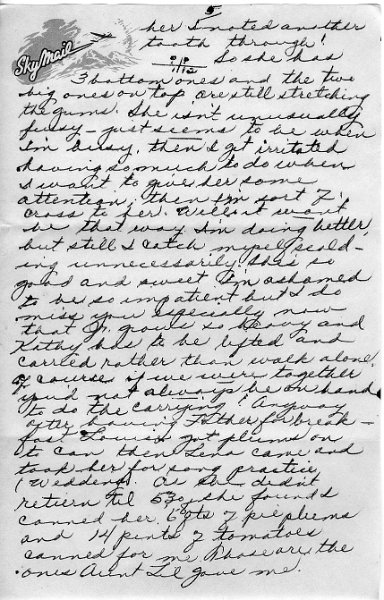 5
Sky Mail
her I noted another
tooth through!
So she has
3 bottom ones and the two
big ones on top are still stretching
the gums. She isn't unusually
fussy – just seems to be when
I'm busy, then I get irritated
having so much to do when
I want to give her some
attention, then I'm sort of
cross to her. Will not want
be that way. I'm doing better,
but still I catch myself scold-
ing unnecessarily. She's so
good and sweet I'm ashamed
to be so impatient but I do
miss you especially now
that Jr. grows so heavy and
Kathy has to be lifted and
carried rather than walk alone.
Of course if we were together
you'd not always be on hand
to do the carrying! Anyway
after having Father for break-
fast Louise got plums on
to can then Lena came and
took her for song practice
(Wedding). As she didn't
return til 5:30, she found I
canned her 6 qts of pie plums
and 14 pints of tomatoes
canned for me. Those are the
ones Aunt Lil gave me.